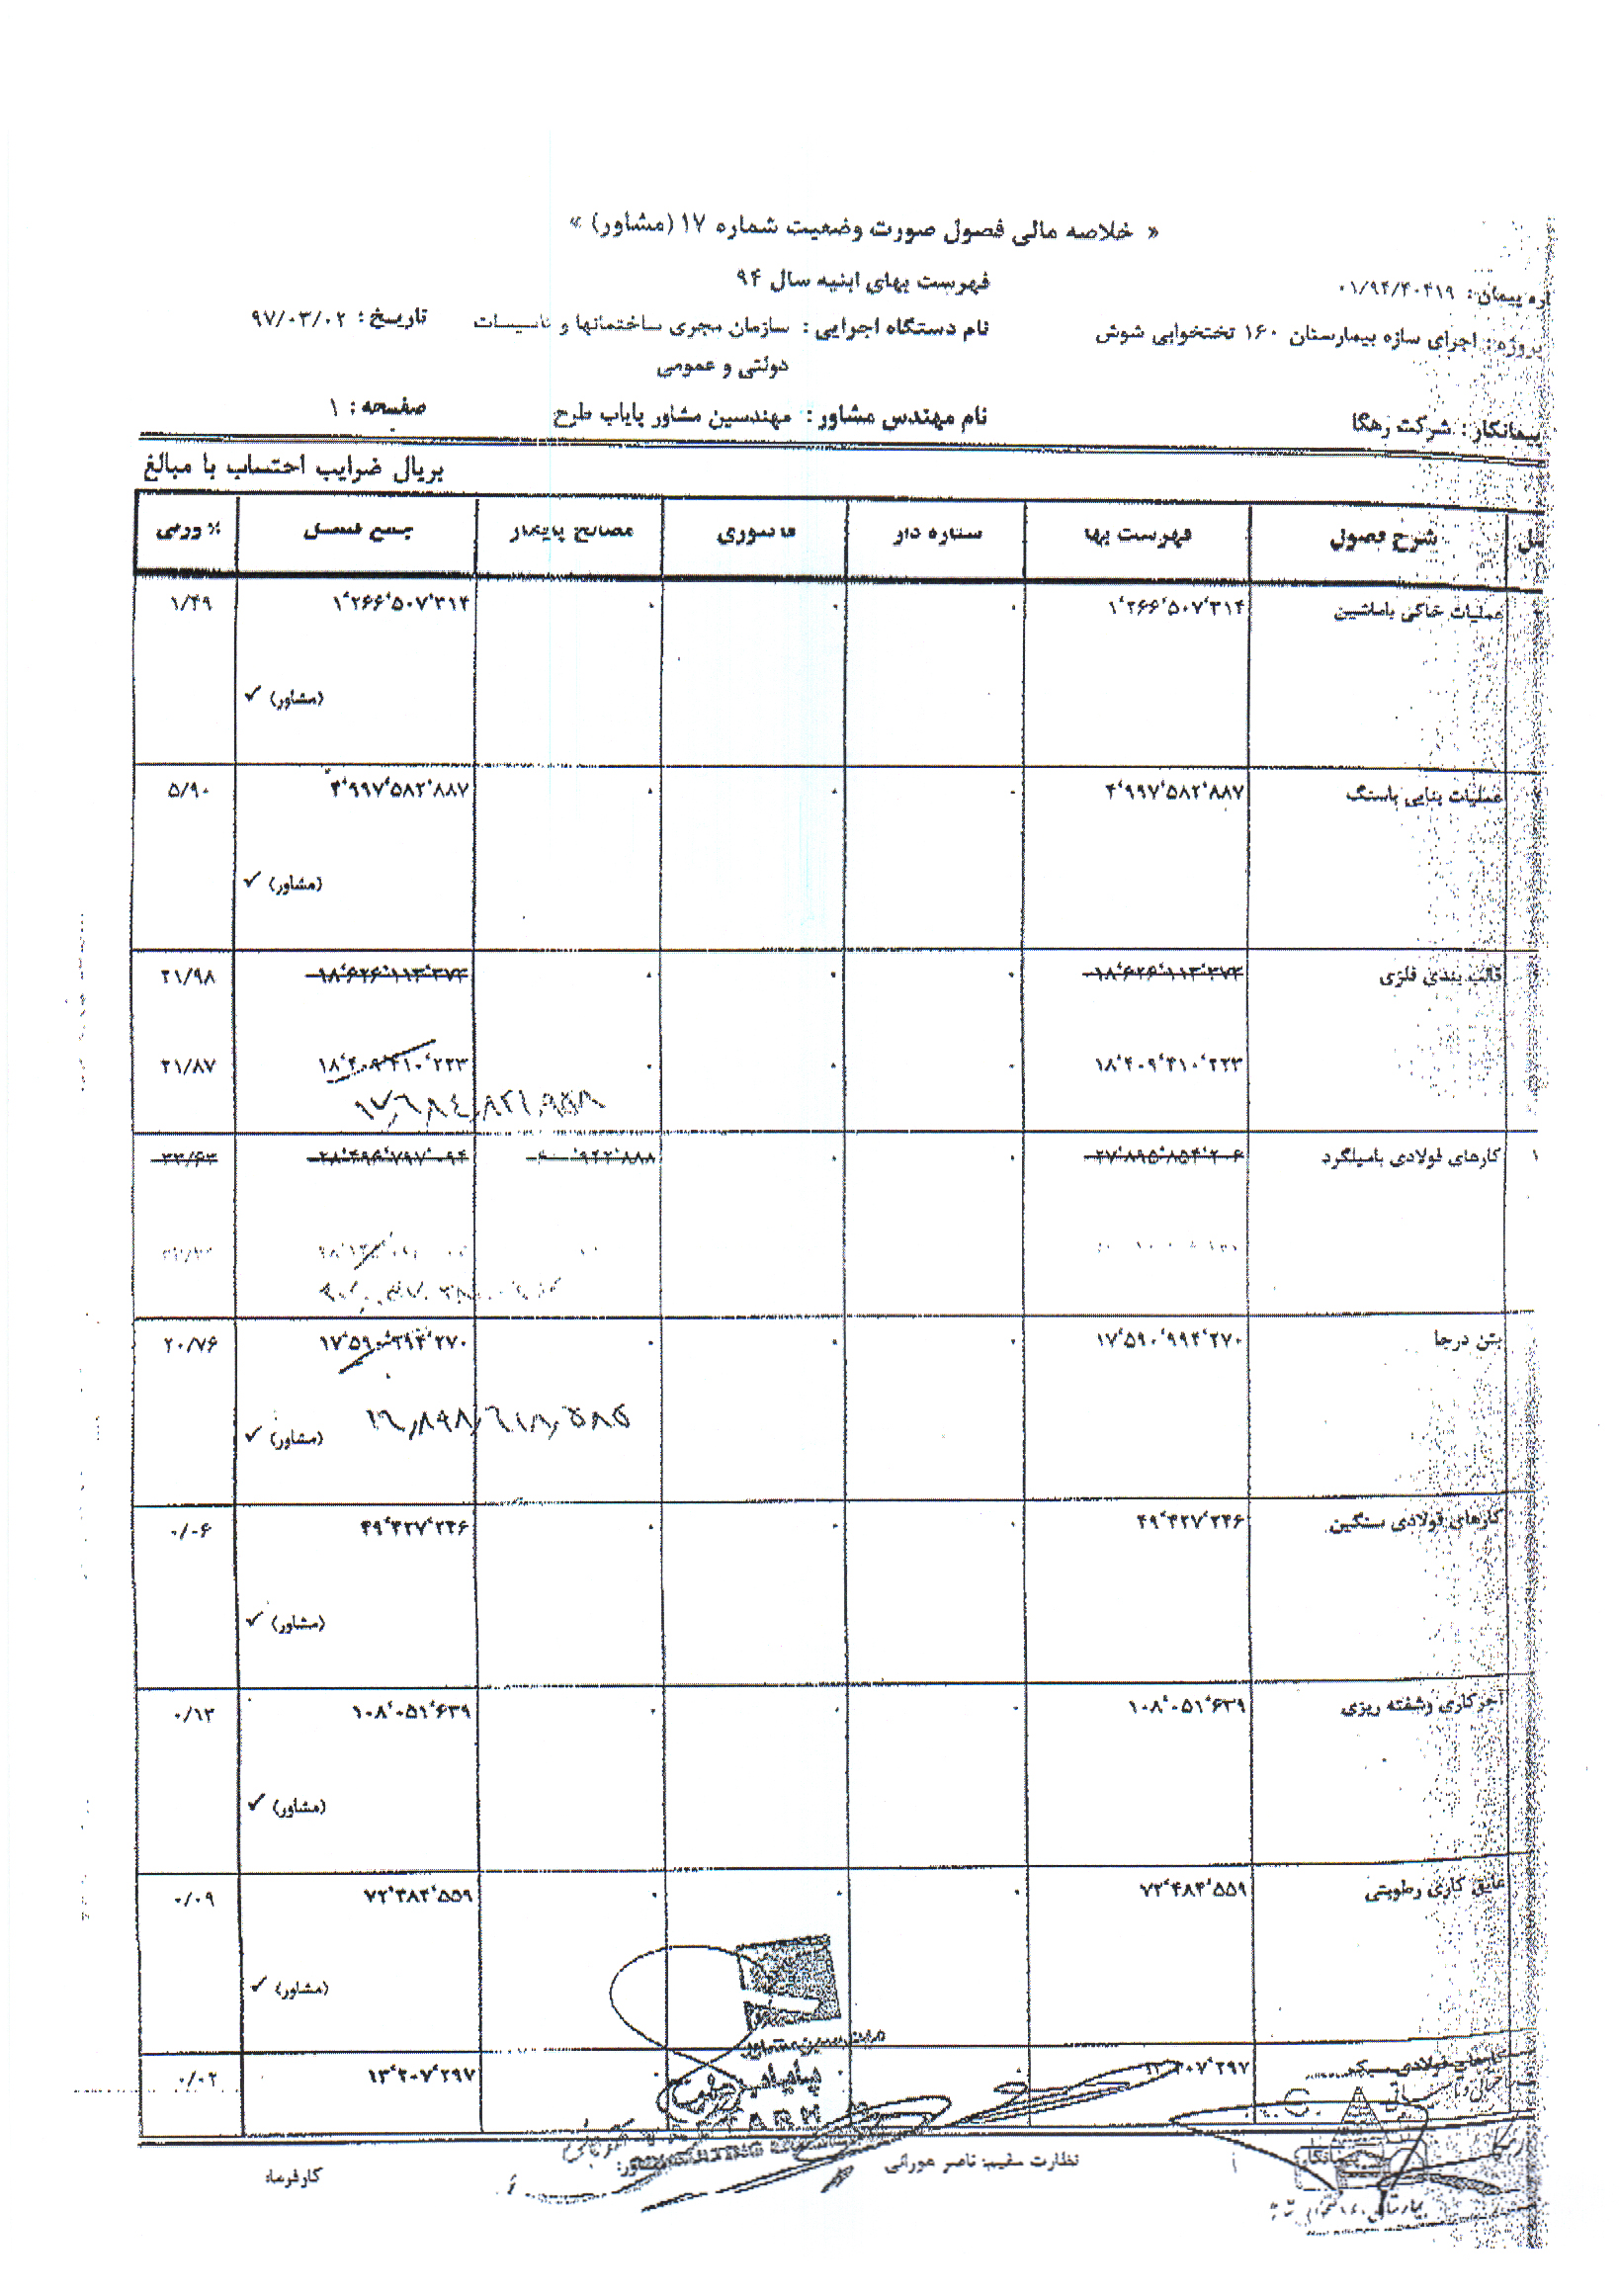 « خلاصه مالی فصول صورت وضعیت شماره ۱۷ (مشاور) »
فهرست بهای ابنیه سال ۹۴
اره پیمان: ۰۱/۹۴/۴۰۴۱۹
پروژه: اجرای سازه بیمارستان ۱۶۰ تختخوابی شوش
نام دستگاه اجرایی: سازمان مجری ساختمانها و تاسیسات دولتی و عمومی
تاریخ: ۹۷/۰۳/۰۲
پیمانکار: شرکت رهگا
نام مهندس مشاور: مهندسین مشاور پایاب طرح
صفیحه: ۱
بریال ضرایب احتساب با مبالغ
شرح فصول فهرست بها ستاره دار فاکتوری مصالح پایکار جمع فصل % وزنی
عملیات خاکی باماشین ۱٬۲۶۶٬۵۰۷٬۳۱۴ ۰ ۰ ۰ ۱٬۲۶۶٬۵۰۷٬۳۱۴ ۱/۴۹
(مشاور) ✓
عملیات بنایی باسنگ ۴٬۹۹۷٬۵۸۲٬۸۸۷ ۰ ۰ ۰ ۴٬۹۹۷٬۵۸۲٬۸۸۷ ۵/۹۰
(مشاور) ✓
قالب بندی فلزی ۱۸٬۶۲۶٬۱۱۳٬۳۷۴ ۰ ۰ ۰ ۱۸٬۶۲۶٬۱۱۳٬۳۷۴ ۲۱/۹۸
۱۸٬۴۰۹٬۴۱۰٬۲۲۳ ۰ ۰ ۰ ۱۸٬۴۰۹٬۴۱۰٬۲۲۳ ۲۱/۸۷
۱۷,۶۸۴,۸۲۱,۹۵۸
کارهای فولادی بامیلگرد ۲۷٬۸۹۵٬۸۵۴٬۲۰۶ ۰ ۰ ۶۰۰٬۹۴۲٬۸۸۸ ۲۸٬۴۹۶٬۷۹۷٬۰۹۴ ۳۳/۶۳
بتن درجا ۱۷٬۵۹۰٬۹۹۴٬۲۷۰ ۰ ۰ ۰ ۱۷٬۵۹۰٬۹۹۴٬۲۷۰ ۲۰/۷۶
۱۶,۸۹۸,۶۱۸,۵۸۵
(مشاور) ✓
کارهای فولادی سنگین ۴۹٬۴۲۷٬۲۴۶ ۰ ۰ ۰ ۴۹٬۴۲۷٬۲۴۶ ۰/۰۶
(مشاور) ✓
آجرکاری وشفته ریزی ۱۰۸٬۰۵۱٬۶۳۹ ۰ ۰ ۰ ۱۰۸٬۰۵۱٬۶۳۹ ۰/۱۳
(مشاور) ✓
عایق کاری رطوبتی ۷۲٬۴۸۴٬۵۵۹ ۰ ۰ ۰ ۷۲٬۴۸۴٬۵۵۹ ۰/۰۹
(مشاور) ✓
کارهای فولادی سبک ۱۳٬۲۰۷٬۲۹۷ ۰ ۰ ۱۳٬۲۰۷٬۲۹۷ ۰/۰۲
مهندسین مشاور
پایاب طرح
پیمانکار
نظارت مقیم: ناصر هورانی
مشاور:
کارفرما: